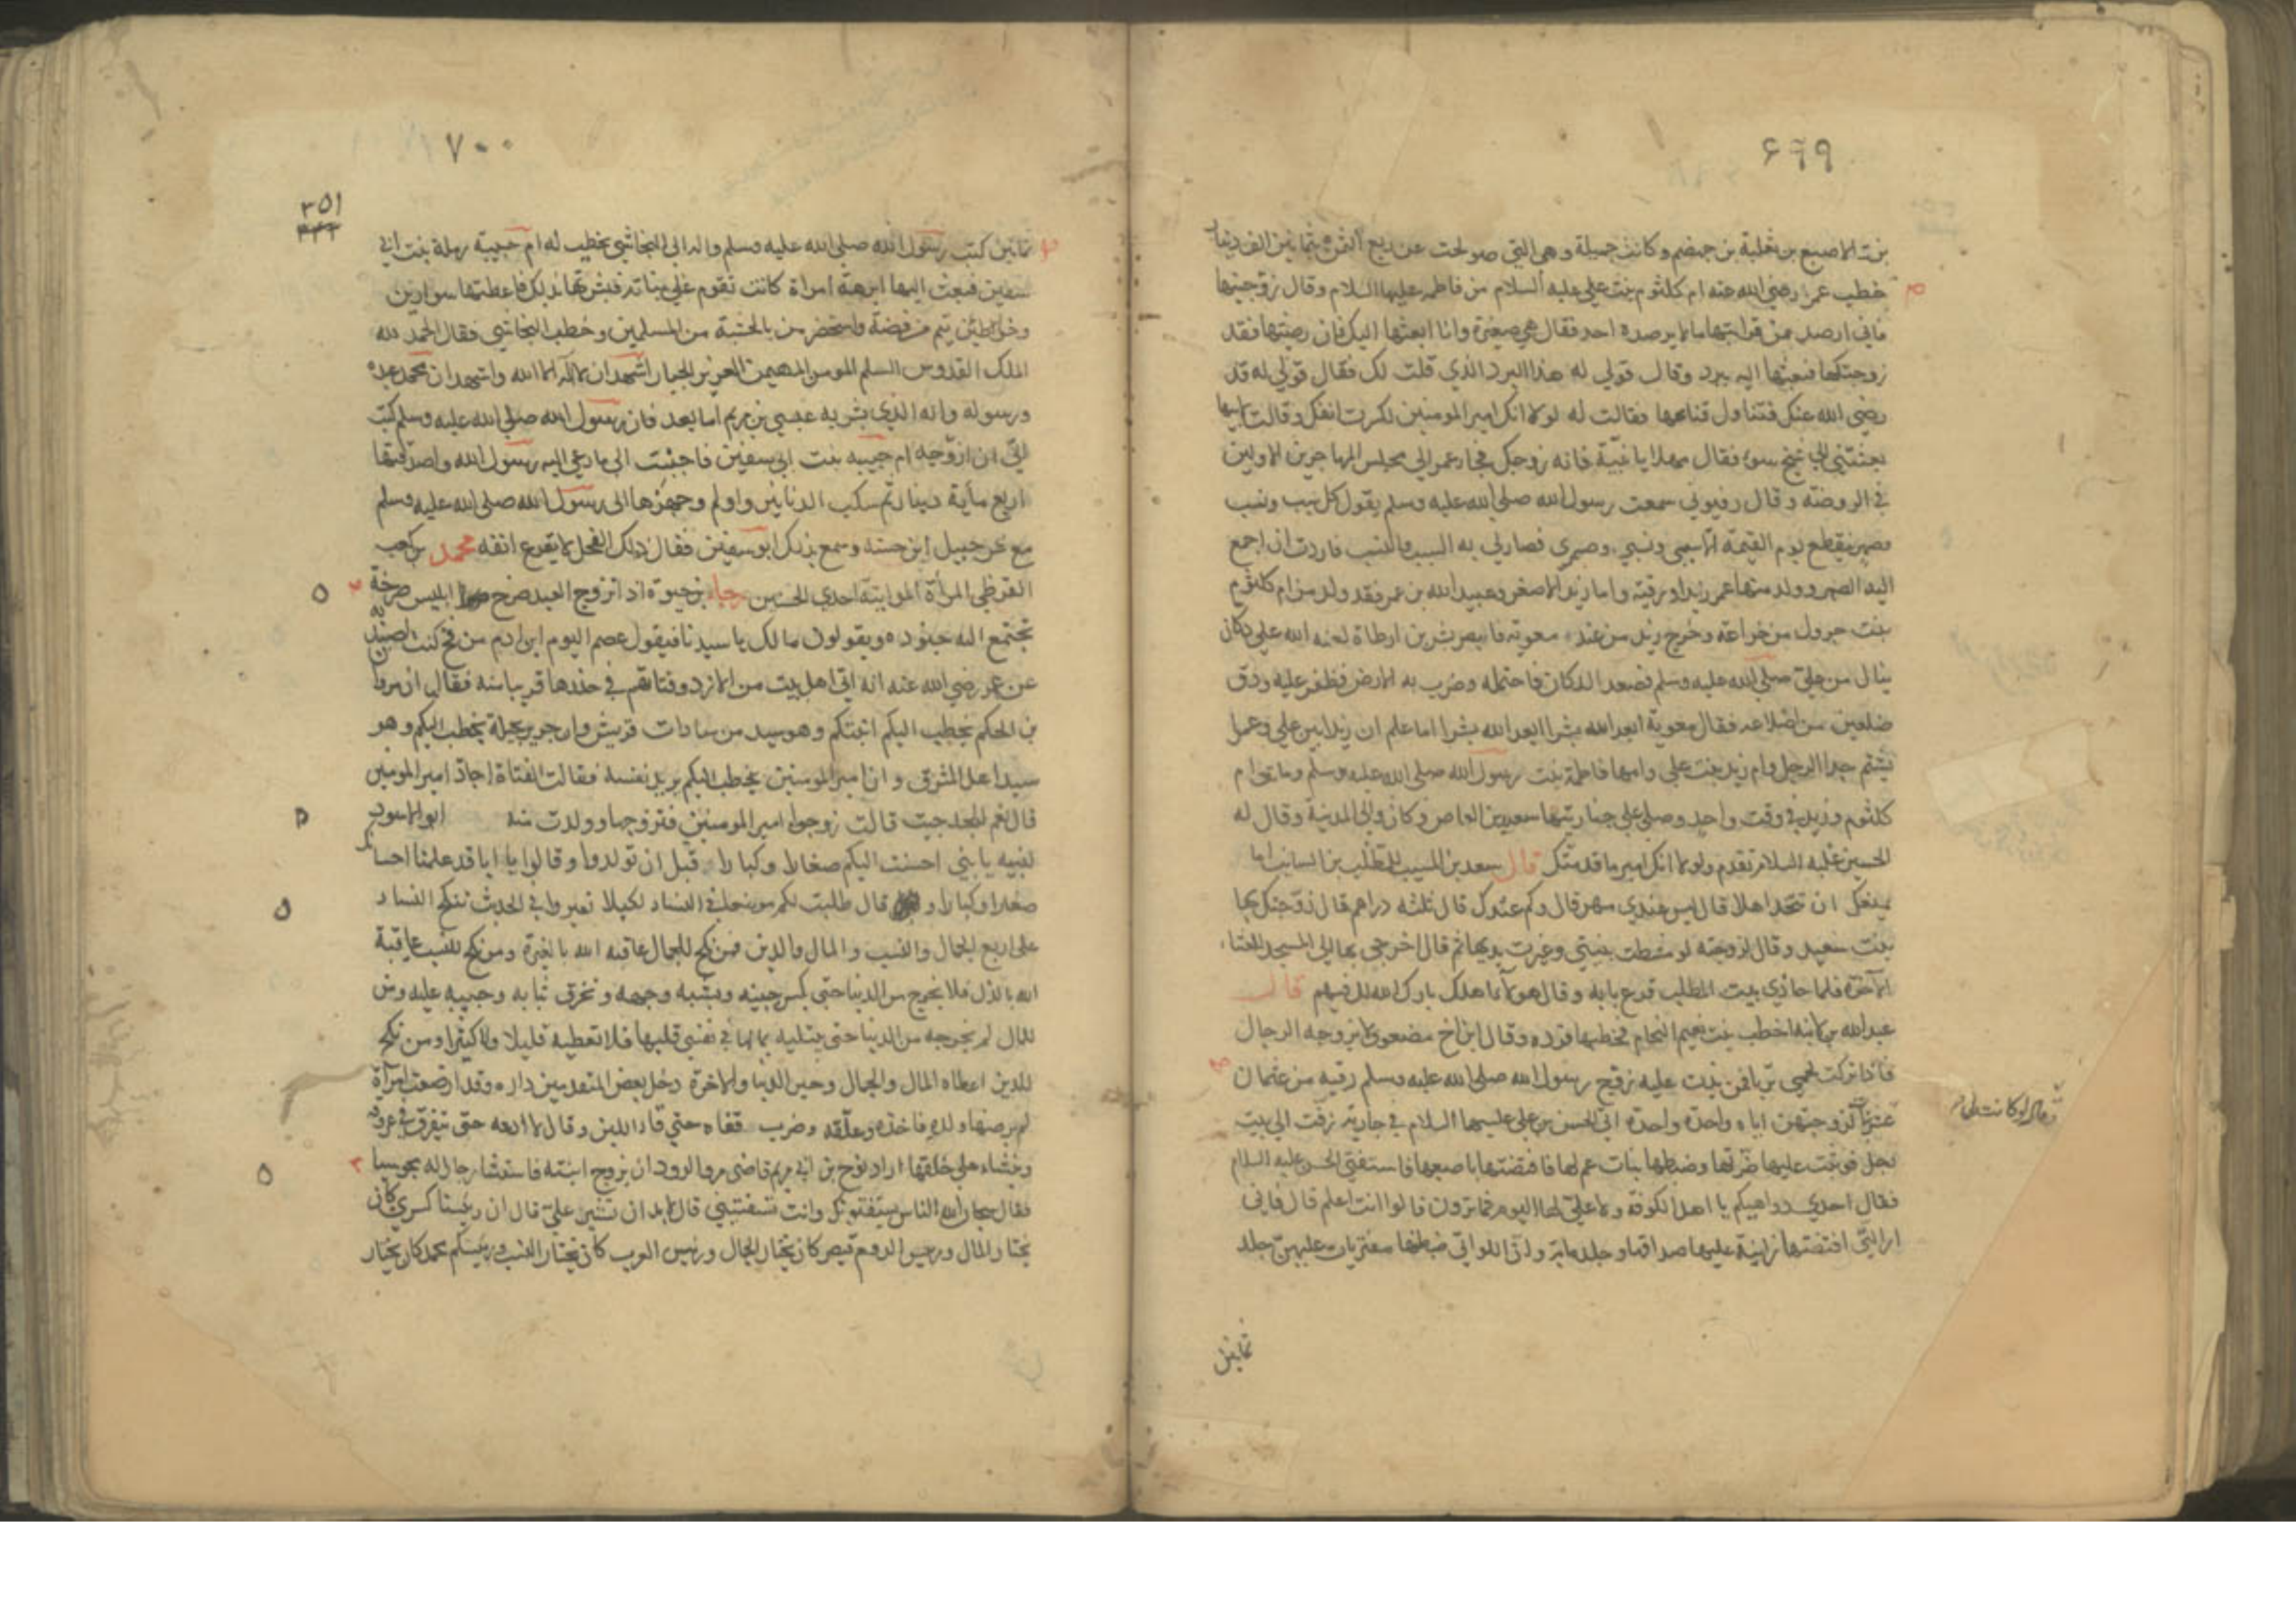 ٦٩٩
بنت الاصبغ بن ثعلبة بن ضمضم وكانت جميلة وهي التي صولحت عن ربع الثمن بثمانين الف دينار
خطب عمر رضي الله عنه ام كلثوم بنت علي عليه السلام من فاطمه عليها السلام وقال زوجنيها
فاني ارصد من قرابتها ما لا يرصده احد فقال هي صغيرة وانا ابعثها اليك فان رضيتها فقد
زوجتكها فبعثها اليه ببرد وقال قولي له هذا البرد الذي قلت لك فقال قولي له قد
رضي الله عنك فتناول قناعها فقالت له لولا انك امير المومنين لكسرت انفك وقالت لابيها
بعثتني الي شيخ سوء فقال مهلا يا بنية فانه زوجك فجاء عمر الي مجلس المهاجرين الاولين
في الروضة وقال رفيوني سمعت رسول الله صلي الله عليه وسلم يقول كل سبب ونسب
وصهر ينقطع يوم القيمة الا سببي ونسبي وصهري فصار لي به السبب والنسب فاردت ان اجمع
اليه الصهر وولد منها عمر زيدا ورقية واما زيد الاصغر وعبيد الله بن عمر فقد ولد من ام كلثوم
بنت جرول من خزاعة وخرج زيد من عند معوية فابصر بشر بن ارطاة لعنه الله علي دكان
ينال من علي صلي الله عليه وسلم فصعد الدكان فاحتمله وضرب به الارض فظفر عليه ودق
ضلعين من اضلاعه فقال معوية ابعد الله بشرا ابعد الله بشرا اما علم ان زيدا بين علي وعمر
يشتم جدا الرجل وام زيد بنت علي وامها فاطمة بنت رسول الله صلي الله عليه وسلم وماتت ام
كلثوم وزيد في وقت واحد وصلي علي جنازتيهما سعيد بن العاص وكان والي المدينة وقال له
الحسين عليه السلام تقدم ولولا انك امير ما قدمتك قال سعد بن المسيب للمطلب بن السائب اما
يمنعك ان تتخذ اهلا قال ليس عندي مهر قال وكم عندك قال ثلثه دراهم قال زوجتك بها
بنت سعيد وقال لزوجته لو مشطت بنيتي وغيرت يديها ثم قال اخرجي بها الي المسجد للعشاء
الآخرة فلما حاذي بيت المطلب قرع بابه وقال هولاء اهلك بارك الله لك فيهم قال
عبد الله خطب بنت نعيم النحام فخطبها فرده وقال ابن اخ مضعوي لا يزوجه الرجال
فاذا تركت لحمي تربا فمن يذب عليه زوج رسول الله صلي الله عليه وسلم رقيه من عثمان
لزوجتهن اياه واحدة واحدة اتي الحسن بن علي عليهما السلام في جارية زفت الي بيت
رجل فوثبت عليها ضرتها وضبطها بنات عم لها فافتضتها باصبعها فاستفتي الحسن عليه السلام
فقال احدي دواهيكم يا اهل الكوفة ولا علي لها اليوم فما ترون قالوا انت اعلم قال فاني
اري التي افتضتها زانية عليها صداقها وجلد مائة واري اللواتي ضبطنها مفتريات عليهن جلد
ثمانين
٧٠٠
٣٥١
ثمانين كتب رسول الله صلي الله عليه وسلم واله الي النجاشي يخطب له ام حبيبة رملة بنت ابي
سفين فبعث اليها ابرهة امراة كانت تقوم علي بناته فبشرتها بذلك فاعطتها سوارين
وخواتيم من فضة واستحضر من بالحبشة من المسلمين وخطب النجاشي فقال الحمد لله
الملك القدوس السلم المومن المهيمن العزيز الجبار اشهد ان لا اله الا الله واشهد ان محمد عبده
ورسوله وانه الذي بشر به عيسي بن مريم اما بعد فان رسول الله صلي الله عليه وسلم كتب
الي ان ازوجه ام حبيبه بنت ابي سفين فاجبت الي ما دعي اليه رسول الله واصدقتها
اربع مأية دينار ثم سكب الدنانير واولم وجهزها الي رسول الله صلي الله عليه وسلم
مع شرحبيل ابن حسنه وسمع بذلك ابو سفين فقال ذلك الفحل لا يقرع انفه محمد بن كعب
القرظي المرأة المواتية احدي الحسنيين رجاء بن حيوة اذا تزوج العبد صرخ ابليس صرخة
تجتمع اليه جنوده ويقولون مالك يا سيدنا فيقول عصم اليوم ابن ادم من فخ كنت اصيده به
عن عمر رضي الله عنه انه اتي اهل بيت من الازد وفتاتهم في خدرها قريبا منه فقال ان مروان
بن الحكم يخطب اليكم ابنتكم وهو سيد من سادات قريش وان جرير بجيلة يخطب اليكم وهو
سيد اهل المشرق وان امير المومنين يخطب اليكم يريد نفسه فقالت الفتاة اجاد امير المومنين
قال نعم قالت زوجوا امير المومنين فتزوجها وولدت منه ابو الاسود
لبنيه يا بني احسنت اليكم صغارا وكبارا وقبل ان تولدوا وقالوا يا ابانا قد علمنا احسانك
صغارا وكبارا و قال طلبت لكم موضعا في النساء لكيلا تعيروا في الحديث تنكح النساء
علي اربع الجمال والنسب والمال والدين فمن نكح للجمال عاقبه الله بالغيرة ومن نكح للنسب عاقبه
الله بالذل فلا يخرج من الدنيا حتي يكسر جبينه ويشبه وجهه وتخرق ثيابه وجيبه عليه ومن
للمال لم يخرجه من الدنيا حتي يبتليه بمالها في نفسي قلبها فلا تعطيه قليلا ولا كثيرا ومن نكح
للدين اعطاه المال والجمال وخير الدنيا والاخرة دخل بعض المتقدمين داره وقد ارضعت امرأة
لم يرضها ولده فاخذه وعلقه وضرب قفاه حتي قاء اللبن وقال لا ادعه حتي يتفرق في عروقه
وينشاء علي خلقها اراد نوح بن ابي مريم قاضي مرو الرود ان يزوج ابنته فاستشار جارا له مجوسيا
فقال سبحان الله الناس يستفتونك وانت تستفتيني قال لا بد ان تشير علي قال ان رئيسنا كسري كان
يختار المال ورئيس الروم قيصر كان يختار الجمال ورئيس العرب كان يختار النسب ورئيسكم محمد كان يختار